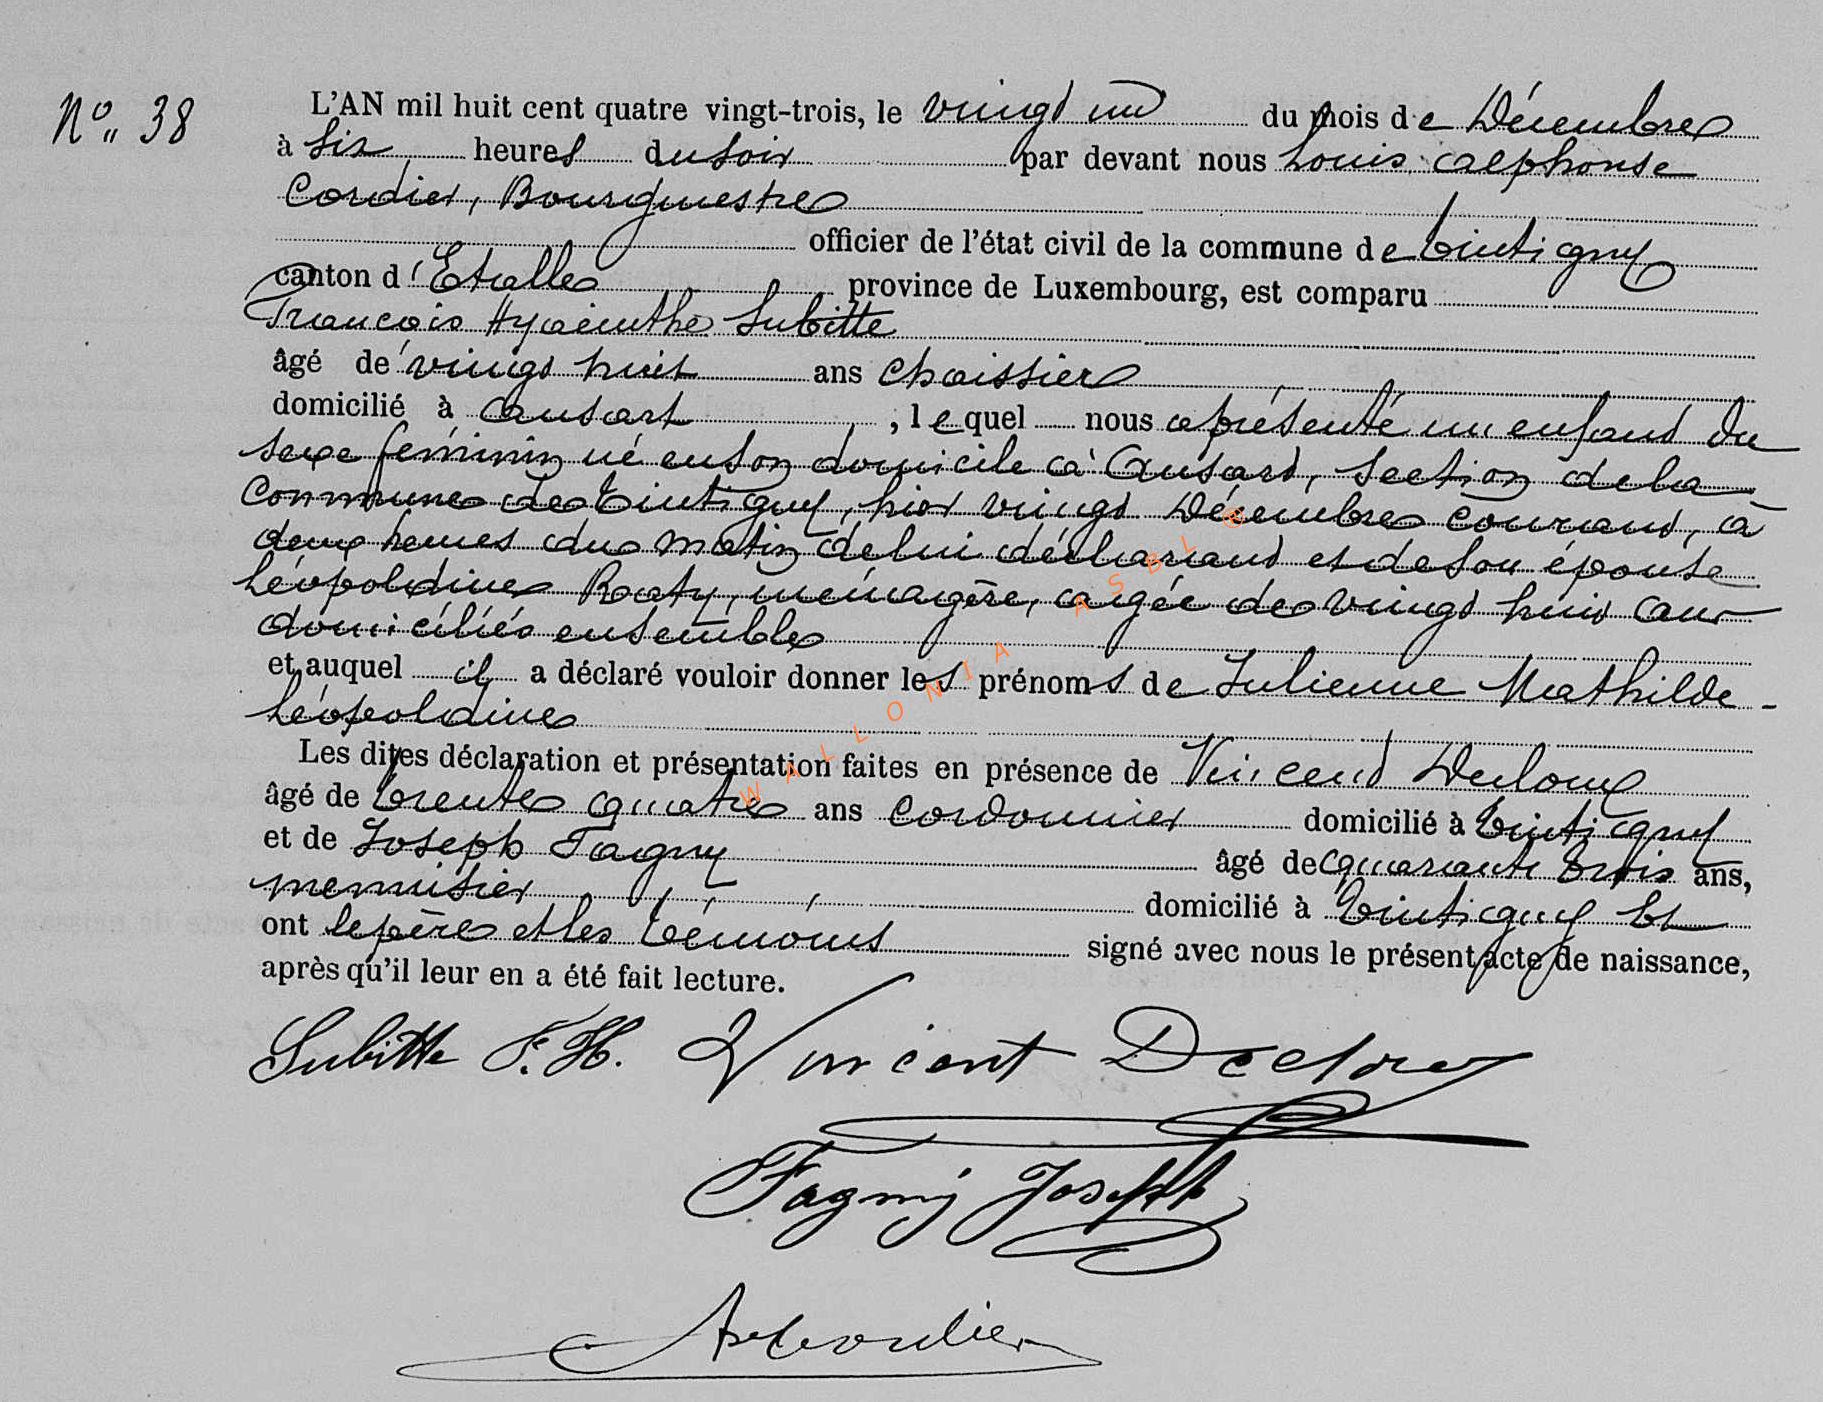 N° 38
L'AN mil huit cent quatre vingt-trois, le vingt un du mois de Décembre
à six heures du soir par devant nous Louis Alphonse
Cordier, Bourgmestre
officier de l'état civil de la commune de Tintigny
canton d'Etalle province de Luxembourg, est comparu
François Hyacinthe Subitte
âgé de vingt huit ans chaissier
domicilié à Ansart, lequel nous a présenté un enfant du
sexe féminin né en son domicile à Ansart, section de la
commune de Tintigny, hier vingt Décembre courant, à
deux heures du matin de lui déclarant et de son épouse
Léopoldine Raty, ménagère, agée de vingt huit ans
domiciliés ensemble
et auquel il a déclaré vouloir donner les prénoms de Julienne Mathilde -
Léopoldine
Les dites déclaration et présentation faites en présence de Vincent
âgé de trente quatre ans cordonnier domicilié à Tintigny
et de Joseph Fagny âgé de quarante trois ans,
menuisier domicilié à Tintigny Et
ont le père et les témoins signé avec nous le présent acte de naissance,
après qu'il leur en a été fait lecture.
Subitte F. H. Vincent
Fagny Joseph
WALLONIA ASBL ®